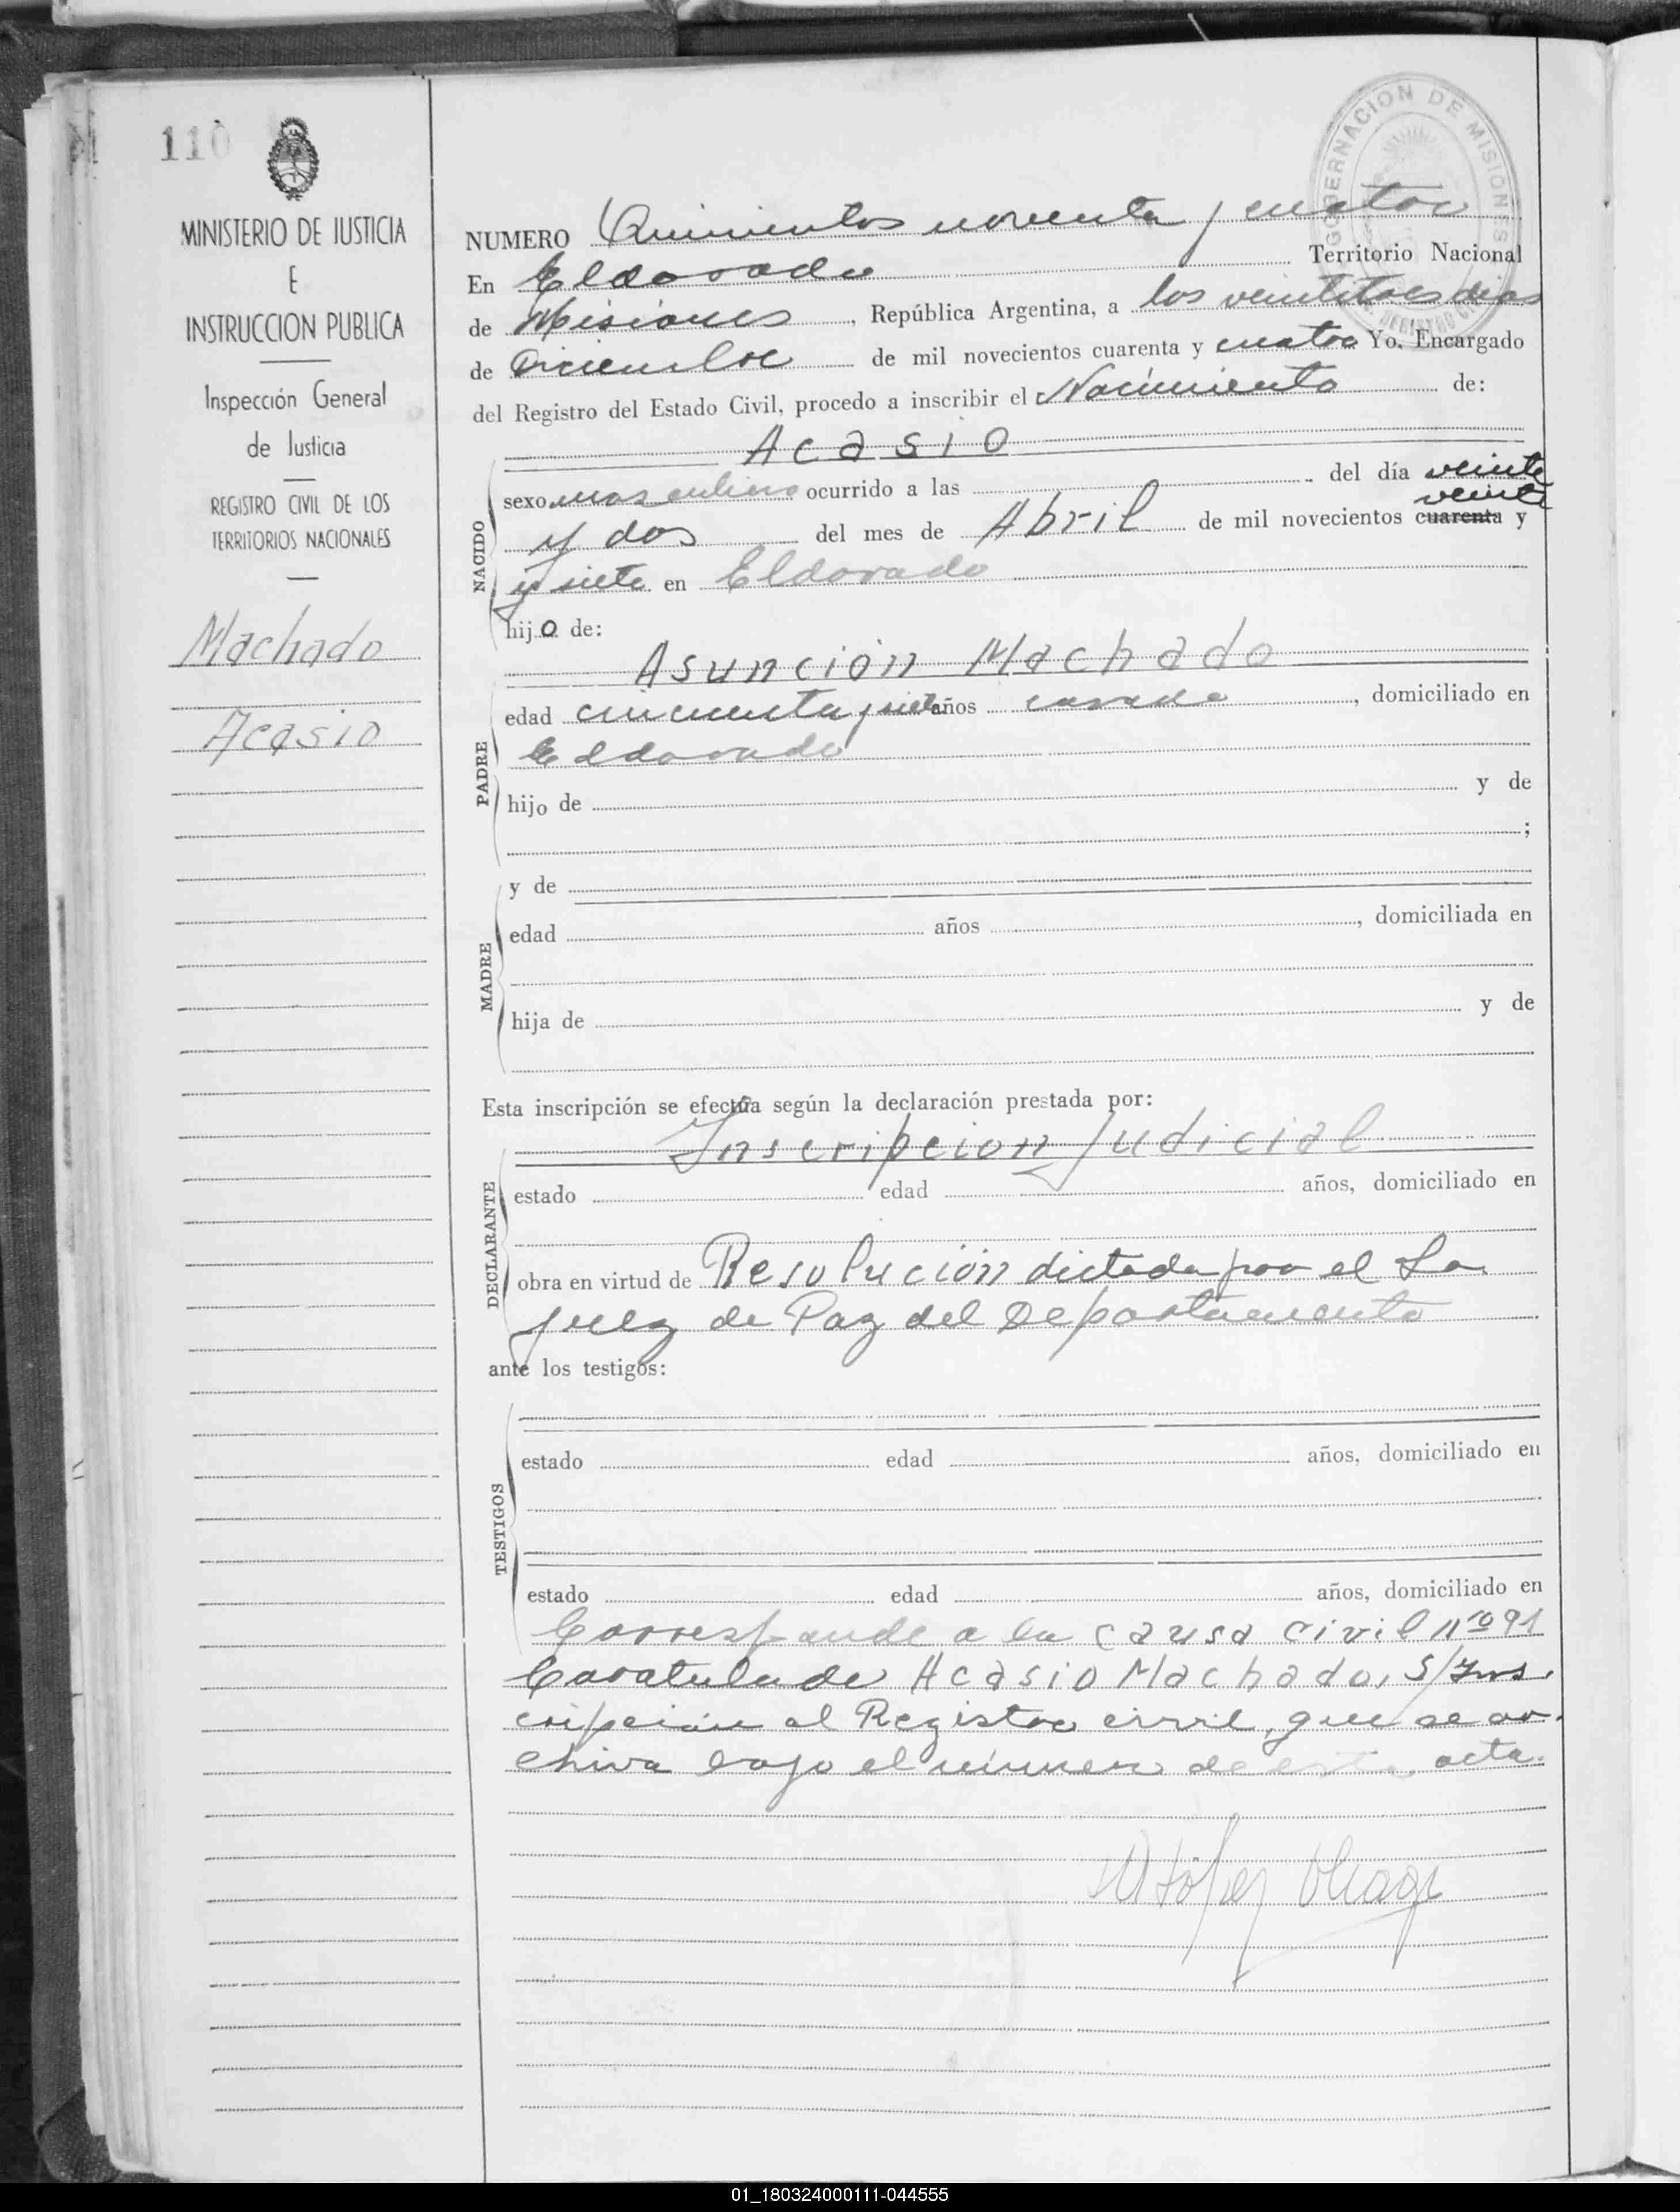 110
MINISTERIO DE JUSTICIA
E
INSTRUCCION PUBLICA
Inspección General
de Justicia
REGISTRO CIVIL DE LOS
TERRITORIOS NACIONALES
Machado
Acasio
GOBERNACION DE MISIONES
NUMERO Quinientos noventa y cuatro
En Eldorado Territorio Nacional
de Misiones, República Argentina, a los veintitres dias
de Diciembre de mil novecientos cuarenta y cuatro Yo, Encargado
del Registro del Estado Civil, procedo a inscribir el Nacimiento de:
Acasio
NACIDO
sexo masculino ocurrido a las del día veinte
veinte
y dos del mes de Abril de mil novecientos cuarenta y
y siete en Eldorado
hijo de:
Asunción Machado
PADRE
edad cincuenta y siete años casado, domiciliado en
Eldorado
hijo de y de
;
MADRE
y de
edad años , domiciliada en
hija de y de
Esta inscripción se efectúa según la declaración prestada por:
Inscripcion Judicial
DECLARANTE
estado edad años, domiciliado en
obra en virtud de Resolución dictada por el
Juez de Paz del Departamento
ante los testigos:
TESTIGOS
estado edad años, domiciliado en
estado edad años, domiciliado en
Corresponde a la causa civil nro 91
Caratulada Acasio Machado, s/Ins
cripción al Registro civil, que se ar-
chiva bajo el número de esta acta.
01_180324000111-044555